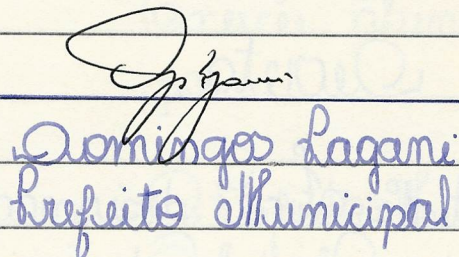 Domingos Lagani
Prefeito Municipal